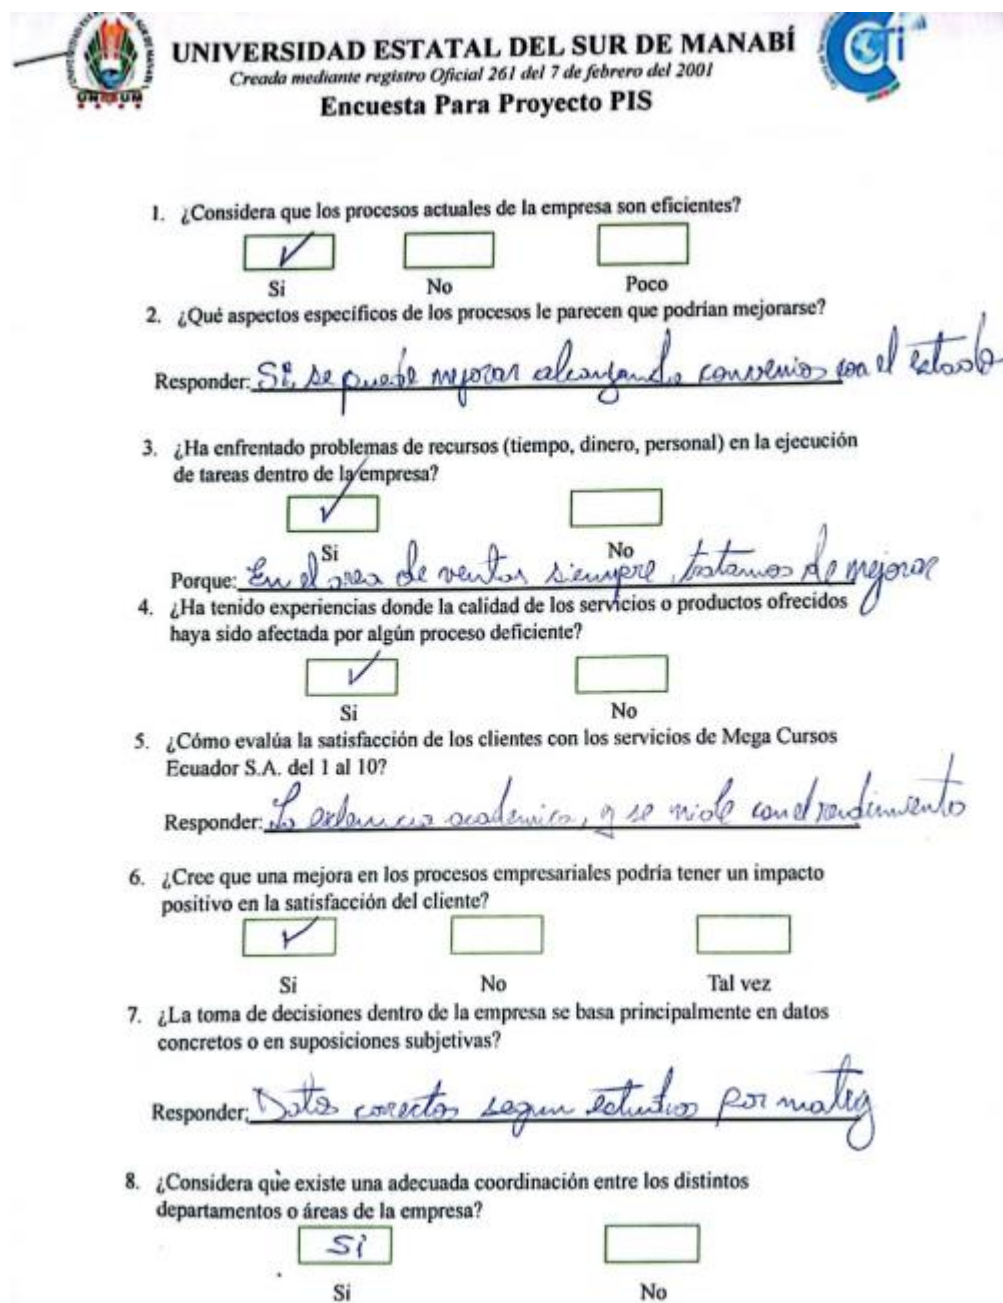 UNIVERSIDAD ESTATAL DEL SUR DE MANABÍ
Creada mediante registro Oficial 261 del 7 de febrero del 2001
Encuesta Para Proyecto PIS
1. ¿Considera que los procesos actuales de la empresa son eficientes?
Si No Poco
2. ¿Qué aspectos específicos de los procesos le parecen que podrían mejorarse?
Responder: Si, se puede mejorar alcanzando convenios con el estado
3. ¿Ha enfrentado problemas de recursos (tiempo, dinero, personal) en la ejecución
de tareas dentro de la empresa?
Si No
Porque: En el area de ventas siempre tratamos de mejorar
4. ¿Ha tenido experiencias donde la calidad de los servicios o productos ofrecidos
haya sido afectada por algún proceso deficiente?
Si No
5. ¿Cómo evalúa la satisfacción de los clientes con los servicios de Mega Cursos
Ecuador S.A. del 1 al 10?
Responder: academica, y se mide con el rendimiento
6. ¿Cree que una mejora en los procesos empresariales podría tener un impacto
positivo en la satisfacción del cliente?
Si No Tal vez
7. ¿La toma de decisiones dentro de la empresa se basa principalmente en datos
concretos o en suposiciones subjetivas?
Responder: Datos corectos segun estudios por
8. ¿Considera que existe una adecuada coordinación entre los distintos
departamentos o áreas de la empresa?
Si
Si No